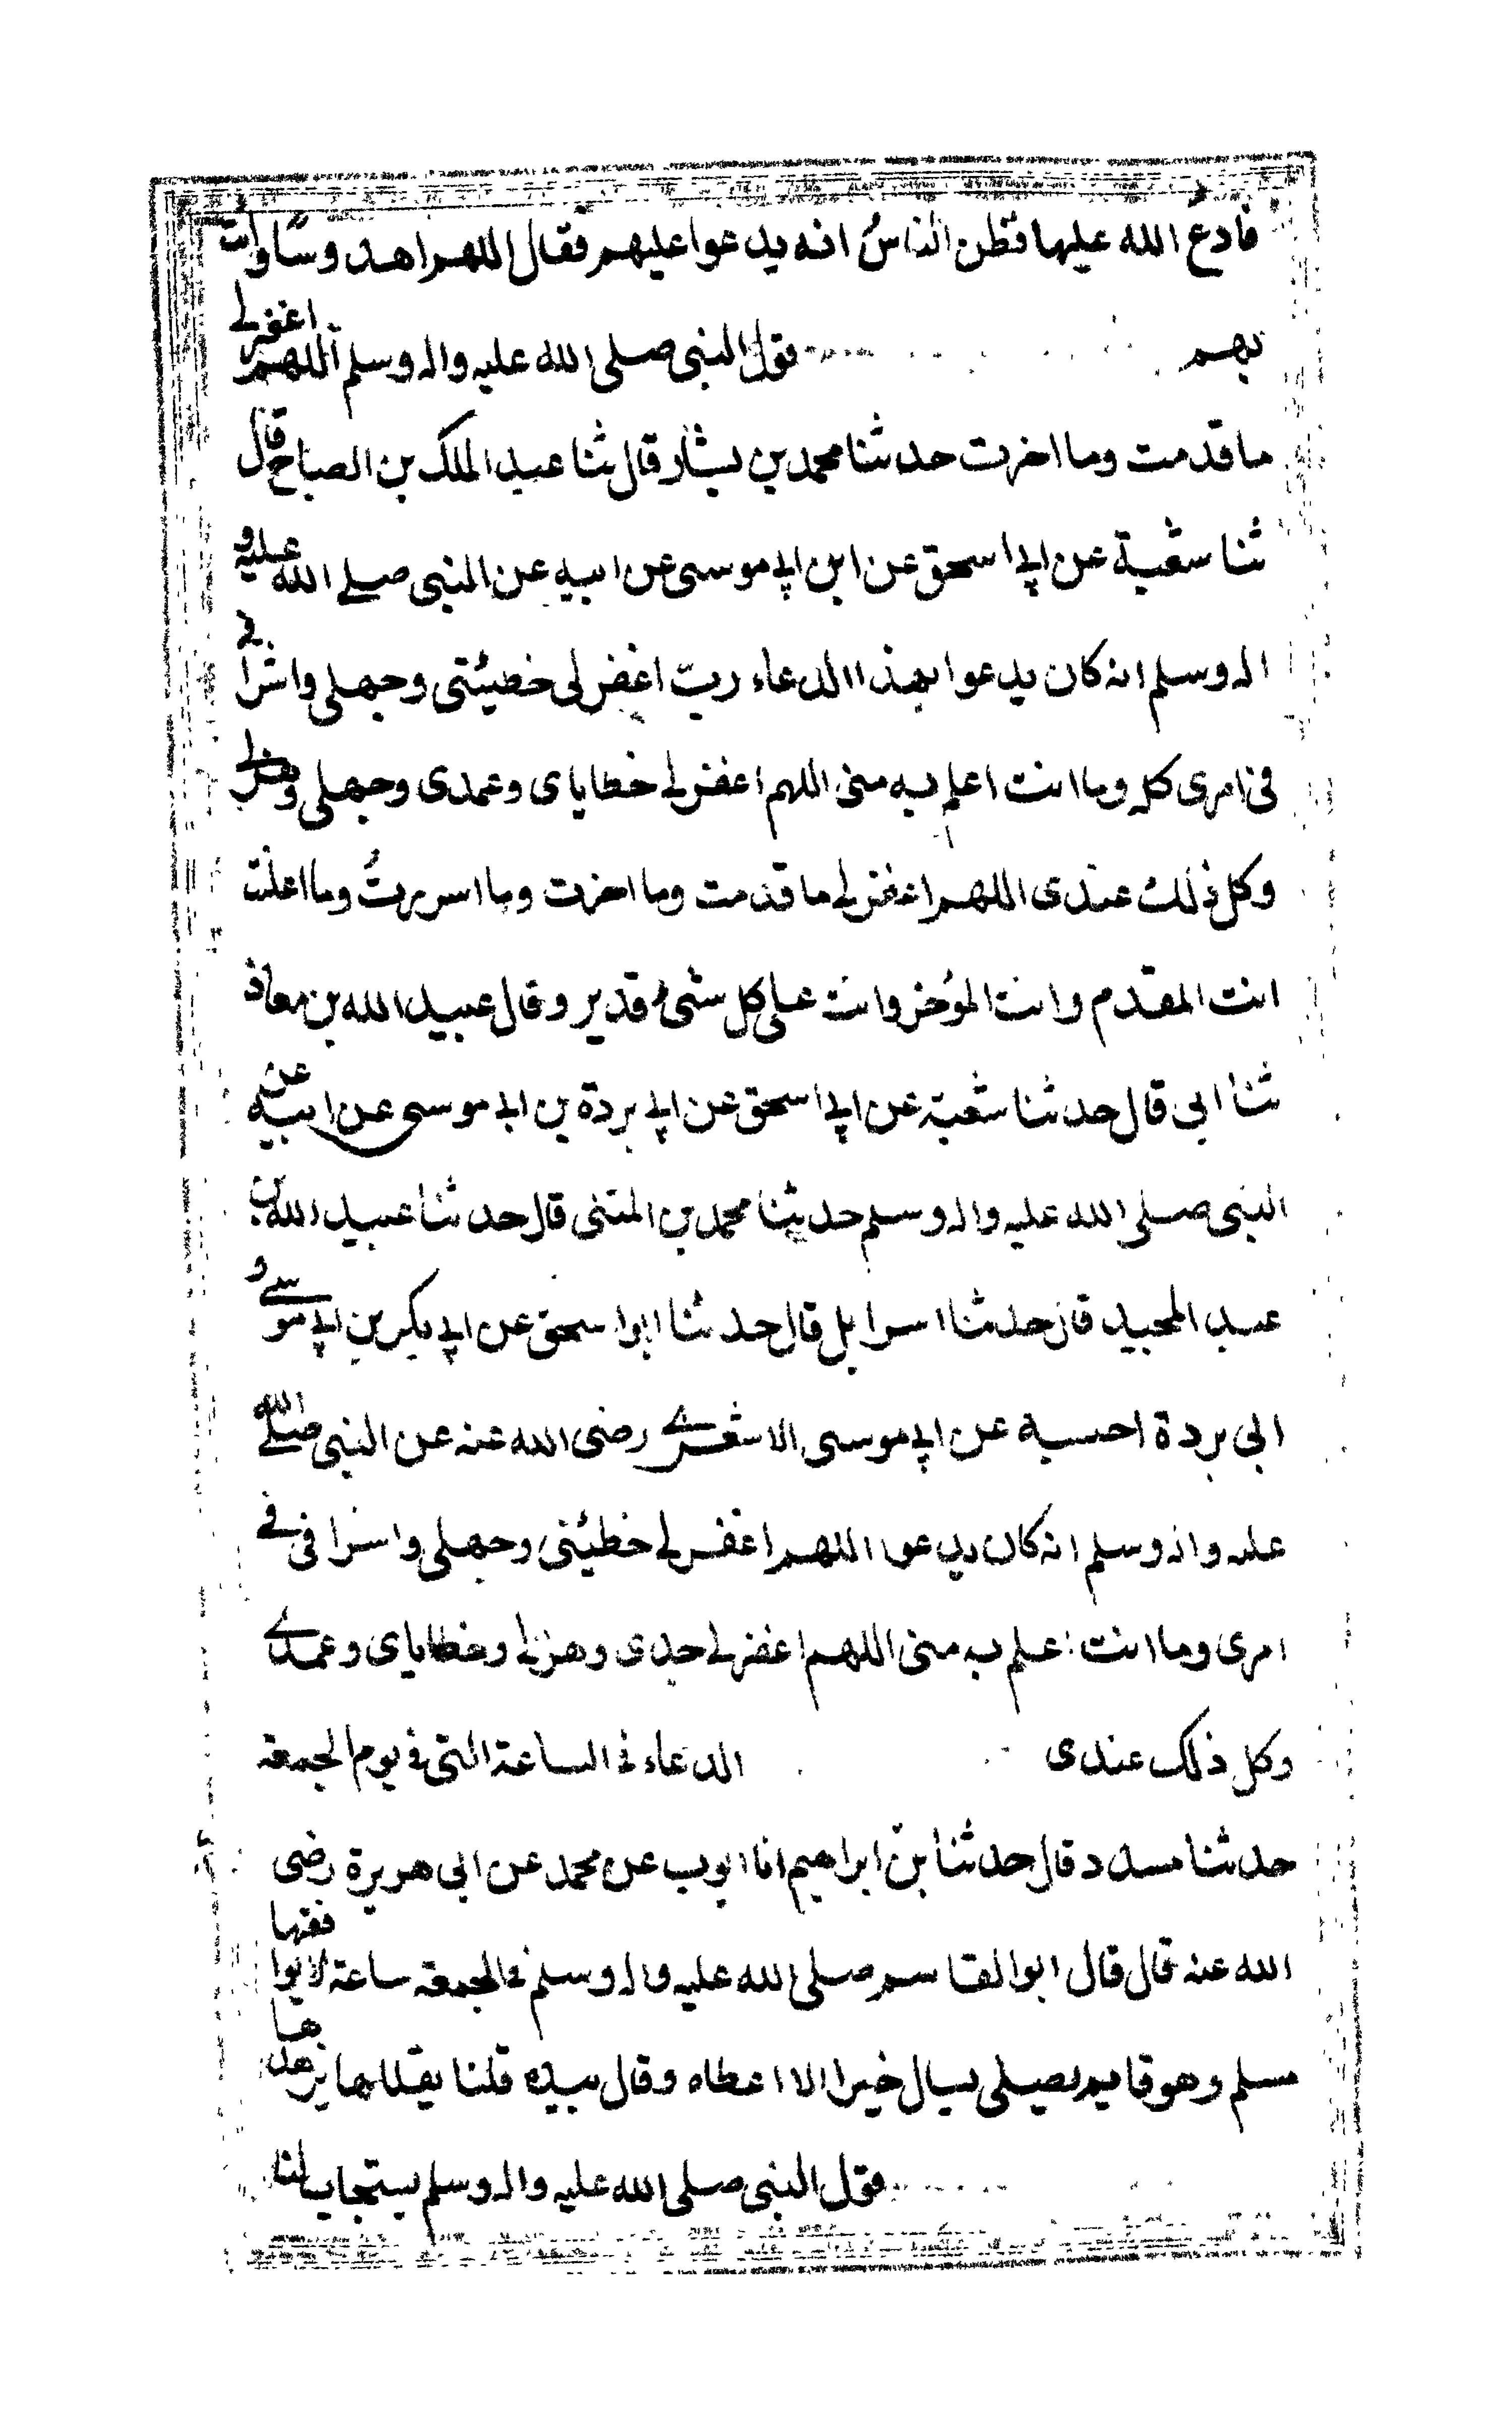 فادعُ الله عليها فظن الناسُ انه يدعوا عليهم فقال اللهم اهد دوسًا وأت
بهم قول النبي صلى الله عليه واله وسلم اللهم اغفر لي
ما قدمت وما اخرت حدثنا محمد بن بشار قال ثنا عبد الملك بن الصباح قال
ثنا شعبة عن ابي اسحق عن ابن ابي موسى عن ابيه عن النبي صلى الله عليه و
اله وسلم انه كان يدعوا بهذا الدعاء رب اغفر لي خطيئتي وجهلي واسرا في
في امري كله وما انت اعلم به مني اللهم اغفر لي خطاياي وعمدي وجهلي وهزلي
وكل ذلك عندي اللهم اغفر لي ما قدمت وما اخرت وما اسررتُ وما اعلنت
انت المقدم وانت المؤخر وانت على كل شيء قدير وقال عبيد الله بن معاذ
ثنا ابي قال حدثنا شعبة عن ابي اسحق عن ابي بردة بن ابي موسى عن ابيه عن
النبي صلى الله عليه واله وسلم حدثنا محمد بن المثنى قال حدثنا عبيد الله بن
عبد المجيد قال حدثنا اسرايل قال حدثنا ابوا سحق عن ابي بكر بن ابي موسى و
ابي بردة احسبه عن ابي موسى الاشعري رضى الله عنه عن النبي صلى الله
عليه واله وسلم انه كان يدعوا اللهم اغفر لي خطيئتي وجهلي واسرا في في
امري وما انت اعلم به مني اللهم اغفر لي جدي وهزلي وخطاياي وعمدي
وكل ذلك عندي الدعاء في الساعة التي في يوم الجمعة
حدثنا مسدد قال حدثنا بن ابراهيم انا ايوب عن محمد عن ابي هريرة رضى
الله عنه قال قال ابو القاسم صلى الله عليه واله وسلم في الجمعة ساعة لا يوا فقها
مسلم وهو قايم يصلي يسال خيرا الا اعطاه وقال بيده قلنا يقللها يزهدها
قول النبي صلى الله عليه واله وسلم يستجاب لنا